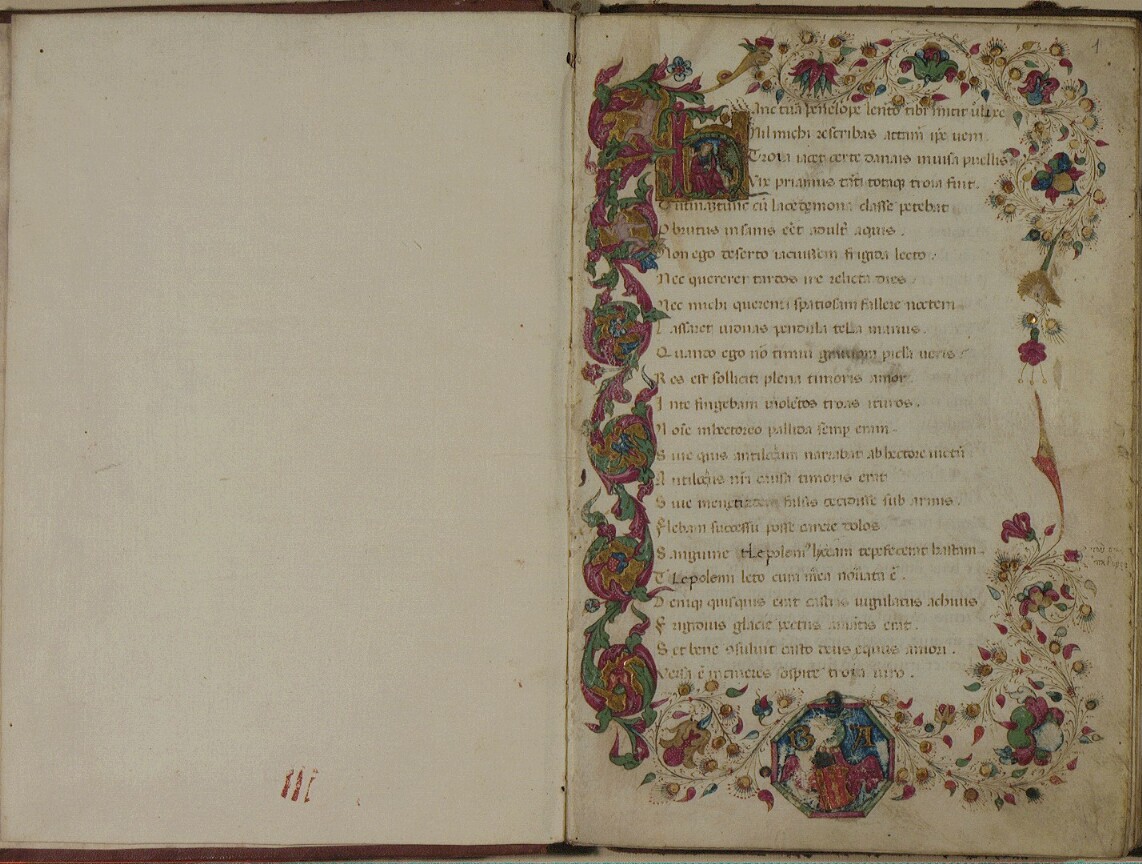 III
1
Hanc tuā penelope lento tibi mittit ulixe
Nil michi rescribas attam̄ ip̄e veni.
Troia iacet certe danais inuisa puellis
Vix priamus tāti totaq; troia fuit.
O utinā tunc cū lacedemona classe petebat
Obrutus insanis eēt adulť aquis.
Non ego deserto iacuissem frigida lecto.
Nec quererer tardos ire relicta dies.
Nec michi querenti spatiosam fallere noctem
Lassaret uiduas pendula tella manus.
Quando ego nō timui grauiora pericla ueris
Res est solliciti plena timoris amor
In te fingebam uioletos troas ituros.
Noīe in hectoreo pallida semp eram.
Siue quis antilocum narrabat ab hectore uictū
Antilocus nr̄i causa timoris erat
Siue menetiadem falsis cecidisse sub armis.
Flebam successū posse carere dolos
Sanguine tlepolem9 lyciam tepefecerat hastam
Tlepolemi leto cura mea nouata ē.
Deniq quisquis erat castris iugulatus achiuis
Frigidius glacie pectus amātis erat.
Set bene 9suluit casto deus equus amori.
Versa ē in cineres sospite troia uiro.
B A